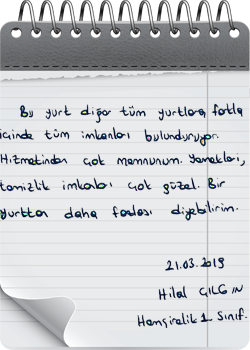 Bu yurt diğer tüm yurtlara fazla
içinde tüm imkanları bulunduruyor.
Hizmetinden çok memnunum. Yemekleri,
temizlik imkanları çok güzel. Bir
yurttan daha fazlası diyebilirim.
21.03.2019
Hilal ÇILGIN
Hemşirelik 1. Sınıf.